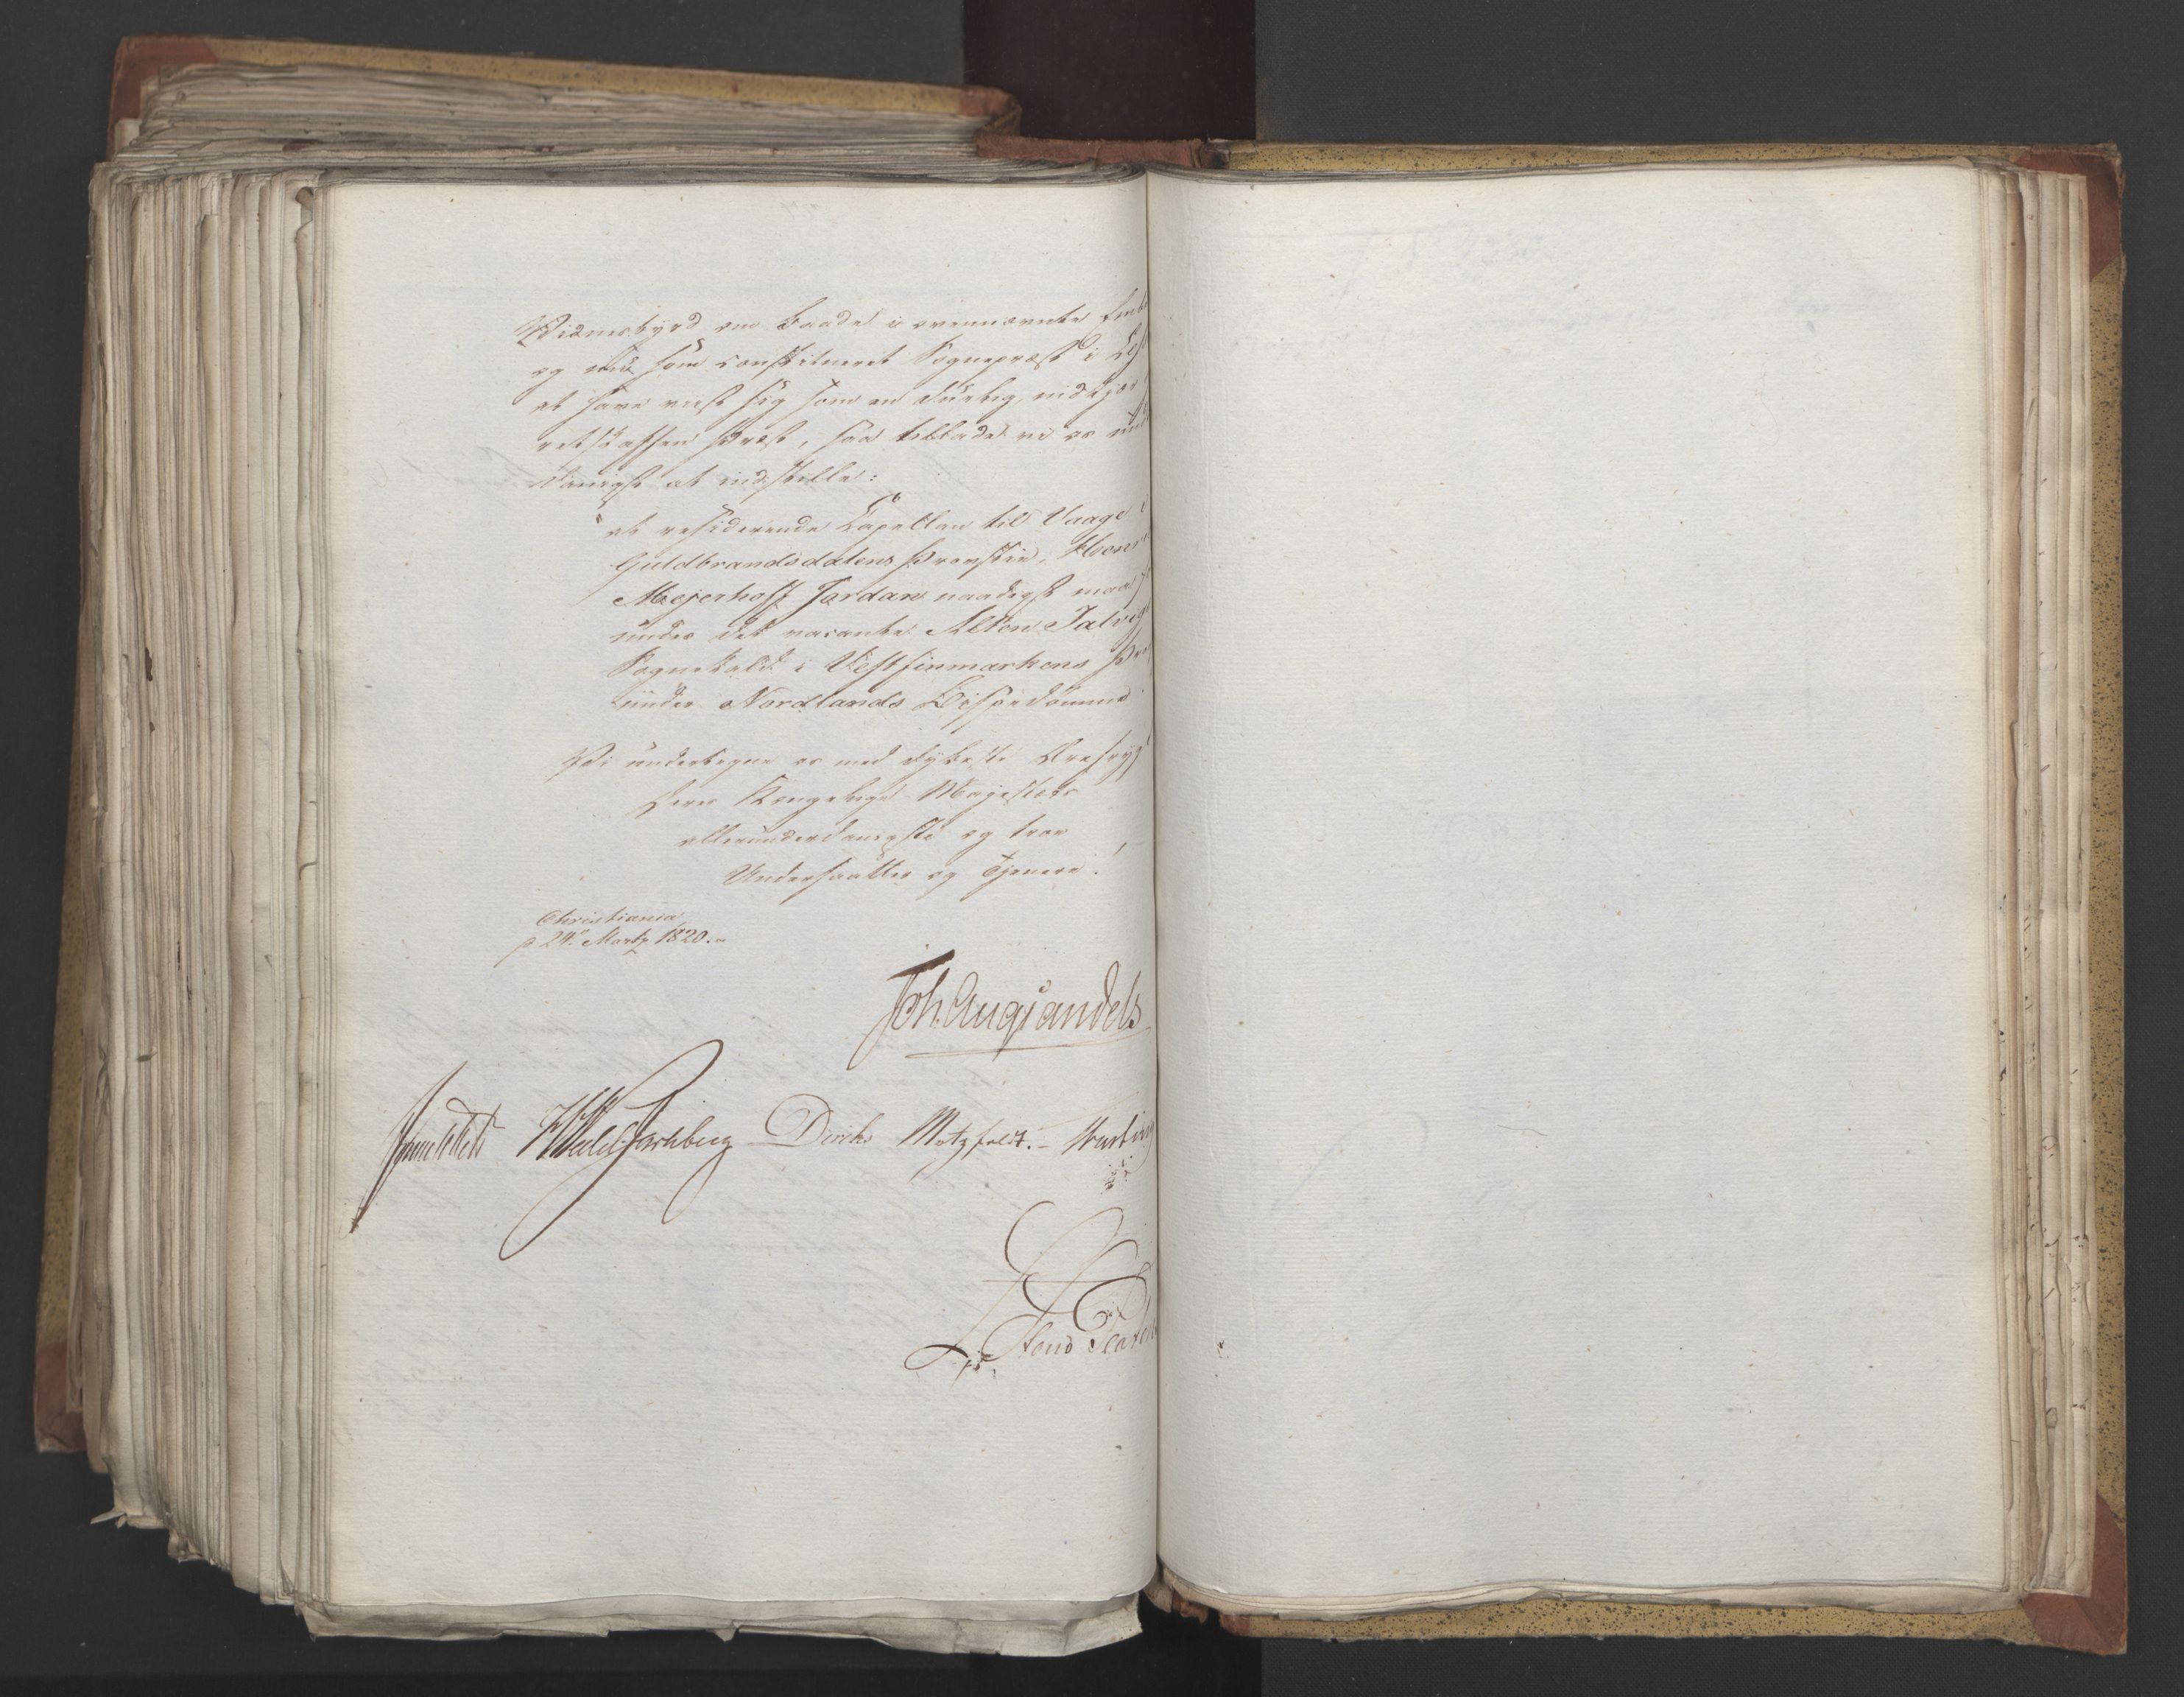 Vidnesbyrd om baade i ovennævnte
og nu som constitueret Sognepræst i
at have viist sig som en duelig, nidkjær
retskaffen Præst, saa tillade vi os
danigst at indstille:
"at residerende Capellan til Vaage i
Guldbrandsdalens Provstie,
Mejerhoff Jordan naadigst maa
under det vacante Alten Talvigs
Sognekald i Vestfinmarkens
under Nordlands Bispedømme
Vi undertegne os med dybeste
Deres Kongelige Majestets
allerunderdanigste og troe
Undersaatter og Tjenere!
Christiania
d 24de Martz 1820.
Joh. Aug Sandels
Sommerhielm HWedel Jarlsberg Diriks Motzfeldt.